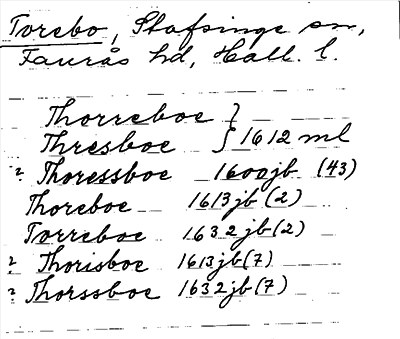 Torebo, Stafsinge sn,
Faurås hd, Hall. l.
Thorreboe }
Thresboe } 1612 ml
? Thoressboe 1600jb (43)
Thoreboe 1613jb (2)
Torreboe 1632jb (2)
? Thorisboe 1613jb (7)
? Thorssboe 1632jb (7)